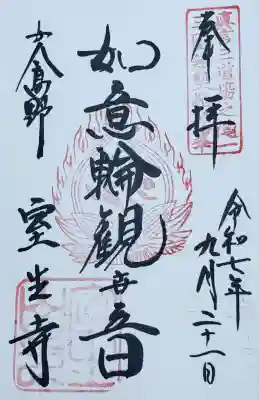 奉拝
令和七年九月二十一日
如意輪観世音
女人高野
室生寺